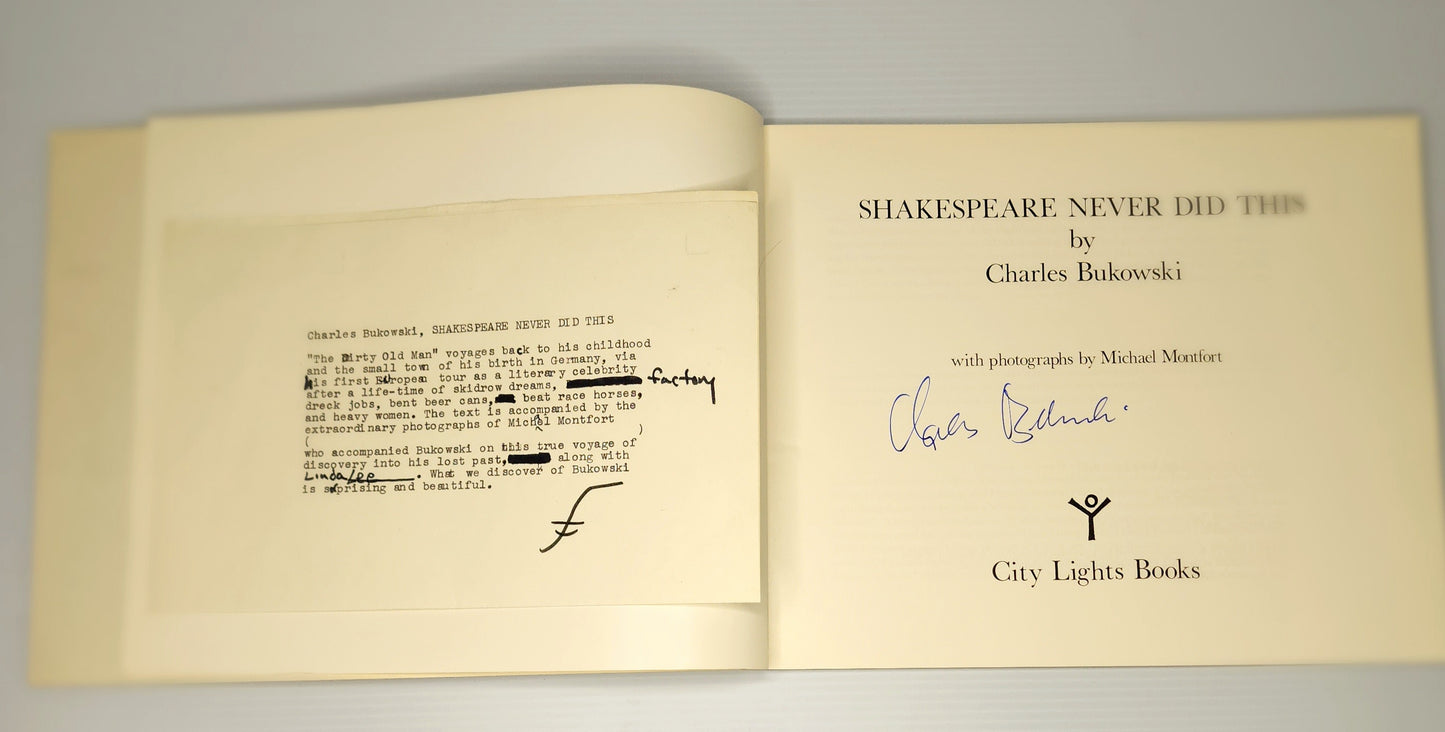 Charles Bukowski, SHAKESPEARE NEVER DID THIS
"The Dirty Old Man" voyages back to his childhood
and the small town of his birth in Germany, via
his first European tour as a literary celebrity
after a life-time of skidrow dreams, factory
dreck jobs, bent beer cans, beat race horses,
and heavy women. The text is accompanied by the
extraordinary photographs of Michel Montfort
( )
who accompanied Bukowski on this true voyage of
discovery into his lost past, along with
Linda Lee. What we discover of Bukowski
is surprising and beautiful.
SHAKESPEARE NEVER DID THIS
by
Charles Bukowski
with photographs by Michael Montfort
Charles Bukowski
City Lights Books